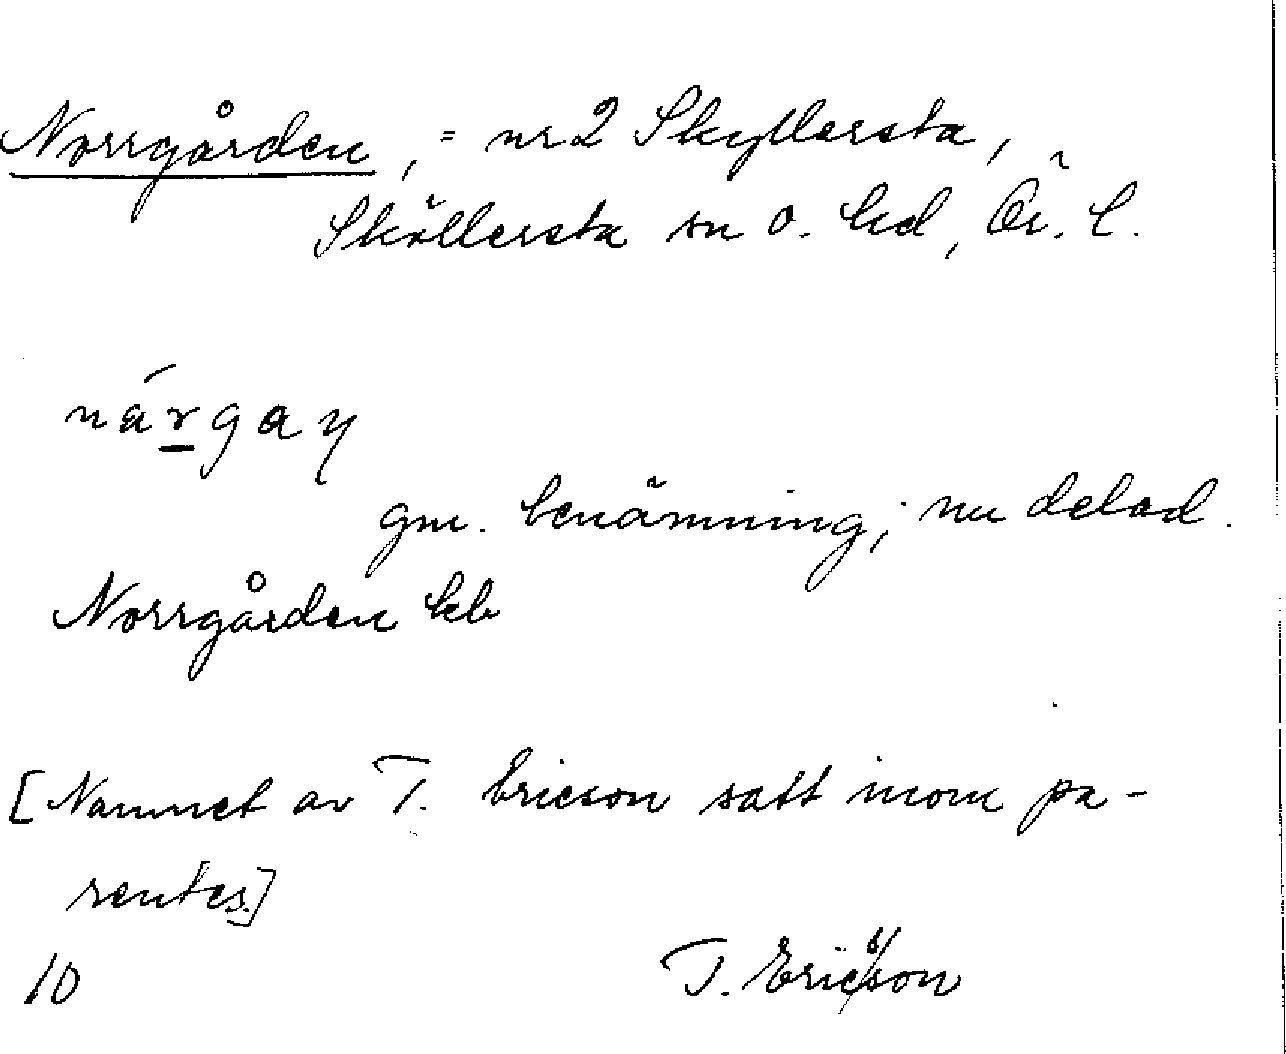 Norrgården, = nr 2 Skyllersta,
Sköllersta sn o. hd, Ör. l.
nárgaŋ
gm. benämning; nu delad.
Norrgården kb
[Namnet av T. Ericson satt inom pa-
rentes.]
10 T. Ericson